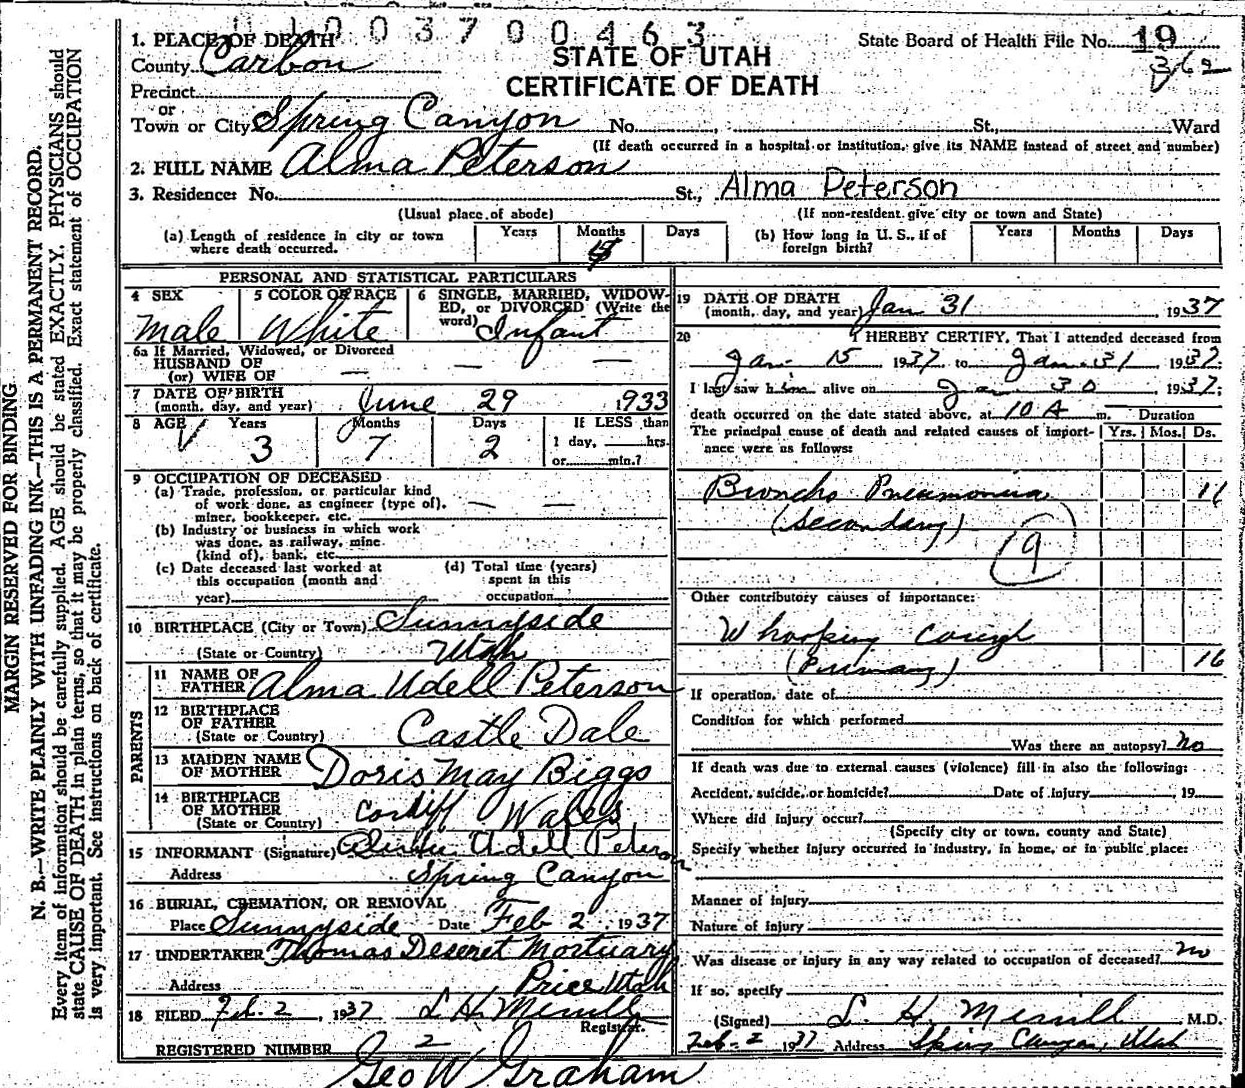 01003700463
1. PLACE OF DEATH
STATE OF UTAH
CERTIFICATE OF DEATH
State Board of Health File No. 19
362
County Carbon
Precinct
or
Town or City Spring Canyon No. , St., Ward
(If death occurred in a hospital or institution, give its NAME instead of street and number)
2. FULL NAME Alma Peterson
3. Residence: No. St., Alma Peterson
(Usual place of abode) (If non-resident give city or town and State)
(a) Length of residence in city or town where death occurred. Years Months Days
(b) How long in U. S., if of foreign birth? Years Months Days
PERSONAL AND STATISTICAL PARTICULARS
4 SEX Male
5 COLOR OR RACE White
6 SINGLE, MARRIED, WIDOWED, or DIVORCED (Write the word) Infant
6a If Married, Widowed, or Divorced
HUSBAND OF —
(or) WIFE OF —
7 DATE OF BIRTH
(month, day, and year) June 29 1933
8 AGE Years 3 Months 7 Days 2 If LESS than
1 day, hrs.
or min.?
9 OCCUPATION OF DECEASED
(a) Trade, profession, or particular kind
of work done, as engineer (type of), — —
miner, bookkeeper, etc.
(b) Industry or business in which work
was done, as railway, mine
(kind of), bank, etc.
(c) Date deceased last worked at
this occupation (month and
year)
(d) Total time (years)
spent in this
occupation
10 BIRTHPLACE (City or Town) Sunnyside
(State or Country) Utah
PARENTS
11 NAME OF
FATHER Alma Udell Peterson
12 BIRTHPLACE
OF FATHER
(State or Country) Castle Dale
13 MAIDEN NAME
OF MOTHER Doris May Biggs
14 BIRTHPLACE
OF MOTHER
(State or Country) Cardiff Wales
15 INFORMANT (Signature) Udell Peterson
Address Spring Canyon
16 BURIAL, CREMATION, OR REMOVAL
Place Sunnyside Date Feb 2 1937
17 UNDERTAKER Thomas Deseret Mortuary
Address Price Utah
18 FILED Feb. 2, 1937 L H Merrill
Registrar.
REGISTERED NUMBER 2
Geo W Graham
19 DATE OF DEATH
(month, day, and year) Jan 31, 1937
20 I HEREBY CERTIFY, That I attended deceased from
Jan. 15 1937 to Jan. 31, 1937.
I last saw him alive on Jan 30, 1937;
death occurred on the date stated above, at 10 A m. Duration
The principal cause of death and related causes of importance were as follows: Yrs. Mos. Ds.
Broncho Pneumonia 11
(Secondary)
9
Other contributory causes of importance:
Whooping Cough
(Primary) 16
If operation, date of
Condition for which performed
Was there an autopsy? no
If death was due to external causes (violence) fill in also the following:
Accident, suicide, or homicide? Date of injury , 19
Where did injury occur?
(Specify city or town, county and State)
Specify whether injury occurred in industry, in home, or in public place:
Manner of injury
Nature of injury
Was disease or injury in any way related to occupation of deceased? no
If so, specify
(Signed) L. H. Merrill M.D.
Feb-2 1937 Address Spring Canyon, Utah
MARGIN RESERVED FOR BINDING
N. B.—WRITE PLAINLY WITH UNFADING INK—THIS IS A PERMANENT RECORD.
Every item of information should be carefully supplied. AGE should be stated EXACTLY. PHYSICIANS should
state CAUSE OF DEATH in plain terms, so that it may be properly classified. Exact statement of OCCUPATION
is very important. See instructions on back of certificate.